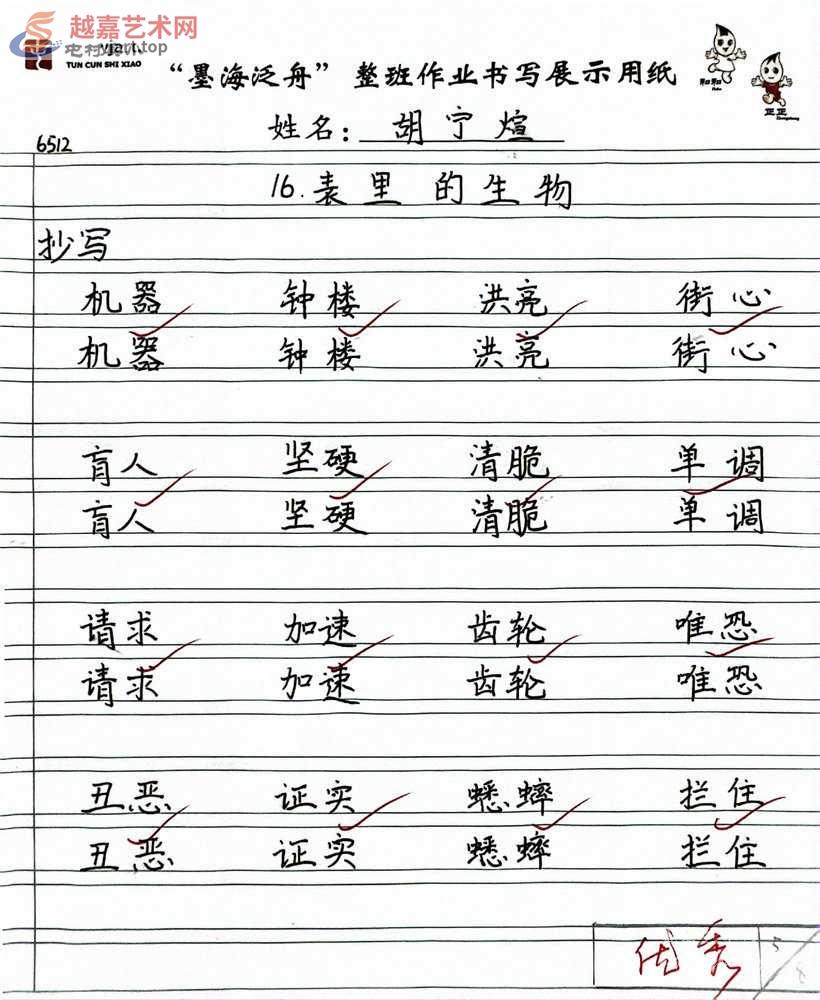 越嘉艺术网
yjart.top
TUN CUN SHI XIAO
“墨海泛舟”整班作业书写展示用纸
和和
正正
姓名：胡宁煊
6512
16.表里的生物
抄写
机器 钟楼 洪亮 街心
机器 钟楼 洪亮 街心
盲人 坚硬 清脆 单调
盲人 坚硬 清脆 单调
请求 加速 齿轮 唯恐
请求 加速 齿轮 唯恐
丑恶 证实 蟋蟀 拦住
丑恶 证实 蟋蟀 拦住
优秀
5/8